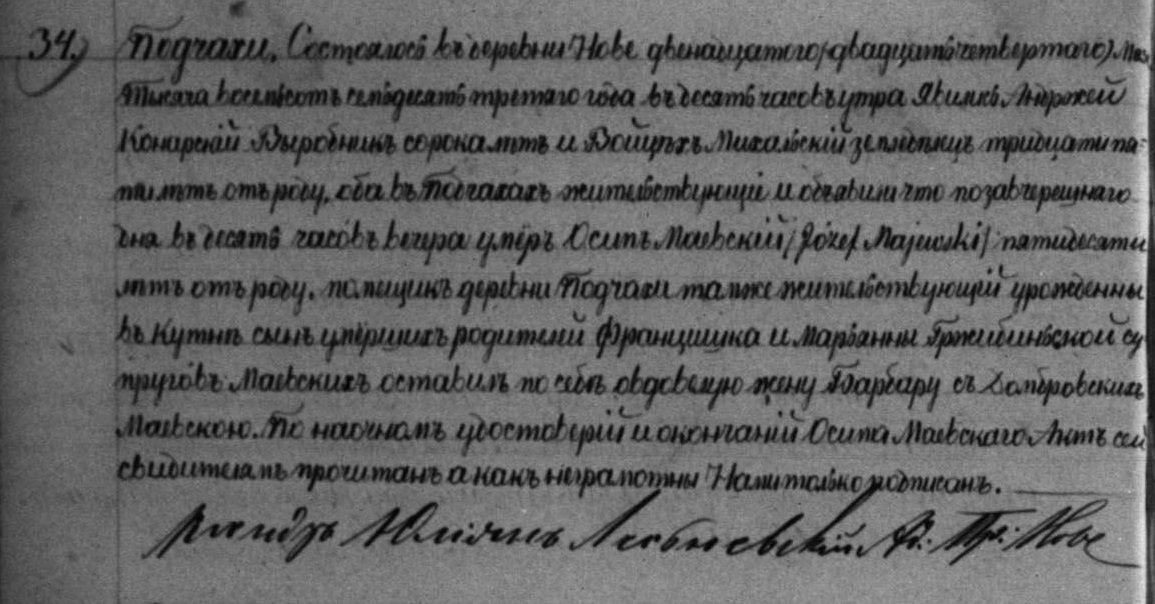 34.) Подчахи. Состоялось въ деревни Нове двенадцатого /двадцать четвертаго/ Мая
Тысяча восемьсотъ семьдесятъ третаго года въ десять часовъ утра Явились Андржей
Конарскій Выробникъ сорокалѣтъ и Войцѣхъ Михальскій земледѣлецъ тридцати пя=
ти лѣтъ отъ роду, оба въ Подчахахъ жительствующіе и объявили что позавчерешнаго
дня въ десять часовъ вечера умеръ Осипъ Маевскій /Józef Majewski/ пятидесяти
лѣтъ отъ роду, помещикъ деревни Подчахи такъже жительствующій урожденны
въ Кутнѣ сынъ умершихъ родителей Францишка и Маріанны Гржибинской су-
пруговъ Маевскихъ оставилъ по себѣ овдовелую жену Барбару съ Домбровскихъ
Маевскою. По наочномъ удостоверій и окончаній Осипа Маевскаго Актъ сей
свидителямъ прочитанъ а какъ неграмотны Нами только подписанъ.
Юліянъ Ад: Пр: Нове